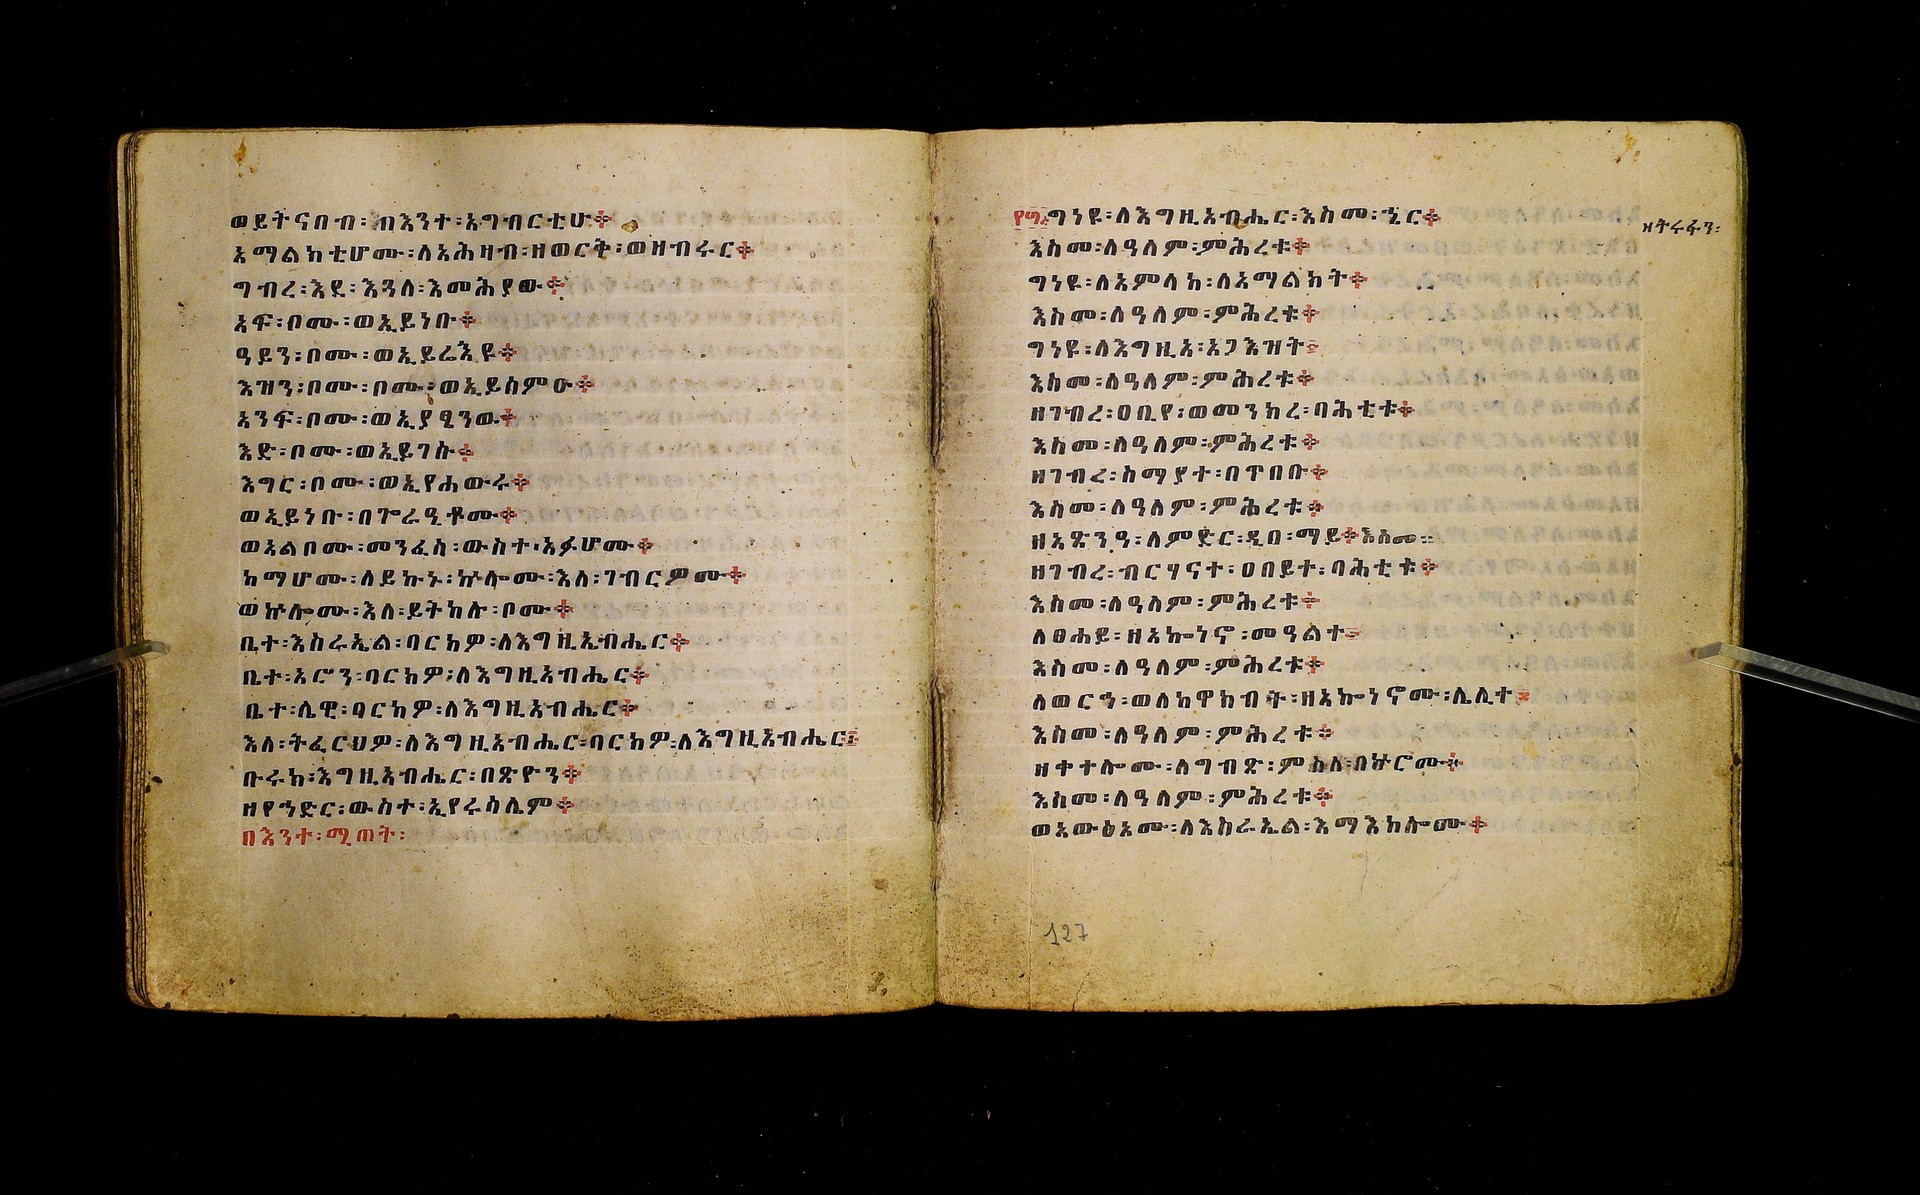 ወይትናበብ፡በእንተ፡አግብርቲሁ።
አማልክቲሆሙ፡ለአሕዛብ፡ዘወርቅ፡ወዘብሩር።
ግብረ፡እደ፡እጓለ፡እመሕያው።
አፍ፡ቦሙ፡ወኢይነቡ።
ዓይን፡ቦሙ፡ወኢይሬእዩ።
እዝን፡ቦሙ፡ቦሙ፡ወኢይሰምዑ።
አንፍ፡ቦሙ፡ወኢያፄንዉ።
እድ፡ቦሙ፡ወኢይገሱ።
እግር፡ቦሙ፡ወኢየሐውሩ።
ወኢይነቡ፡በጕራዒቶሙ።
ወአልቦሙ፡መንፈስ፡ውስተ፡አፉሆሙ።
ከማሆሙ፡ለይኩኑ፡ኵሎሙ፡እለ፡ገብርዎሙ።
ወኵሎሙ፡እለ፡ይትከሉ፡ቦሙ።
ቤተ፡እስራኤል፡ባርክዎ፡ለእግዚአብሔር።
ቤተ፡አሮን፡ባርክዎ፡ለእግዚአብሔር።
ቤተ፡ሌዊ፡ባርክዎ፡ለእግዚአብሔር።
እለ፡ትፈርህዎ፡ለእግዚአብሔር፡ባርክዎ፡ለእግዚአብሔር፤
ቡሩክ፡እግዚአብሔር፡በጽዮን።
ዘየኀድር፡ውስተ፡ኢየሩሳሌም።
በእንተ፡ሚጠት፡
ግነዩ፡ለእግዚአብሔር፡እስመ፡ኄር።
ዘትሩፋን፡
እስመ፡ለዓለም፡ምሕረቱ።
ግነዩ፡ለአምላከ፡ለአማልክት።
እስመ፡ለዓለም፡ምሕረቱ።
ግነዩ፡ለእግዚአ፡አጋእዝት፤
እስመ፡ለዓለም፡ምሕረቱ።
ዘገብረ፡ዐቢየ፡ወመንክረ፡ባሕቲቱ።
እስመ፡ለዓለም፡ምሕረቱ።
ዘገብረ፡ሰማያተ፡በጥበቡ።
እስመ፡ለዓለም፡ምሕረቱ።
ዘአጽንዓ፡ለምድር፡ዲበ፡ማይ።እስመ፡፡
ዘገብረ፡ብርሃናተ፡ዐበይተ፡ባሕቲቱ።
እስመ፡ለዓለም፡ምሕረቱ።
ለፀሐይ፡ዘአኰነኖ፡መዓልተ፤
እስመ፡ለዓለም፡ምሕረቱ።
ለወርኀ፡ወለከዋክብት፡ዘአኰነኖሙ፡ሌሊተ፤
እስመ፡ለዓለም፡ምሕረቱ።
ዘቀተሎሙ፡ለግብጽ፡ምስለ፡በኵሮሙ።
እስመ፡ለዓለም፡ምሕረቱ።
ወአውፅአሙ፡ለእስራኤል፡እማእከሎሙ።
127